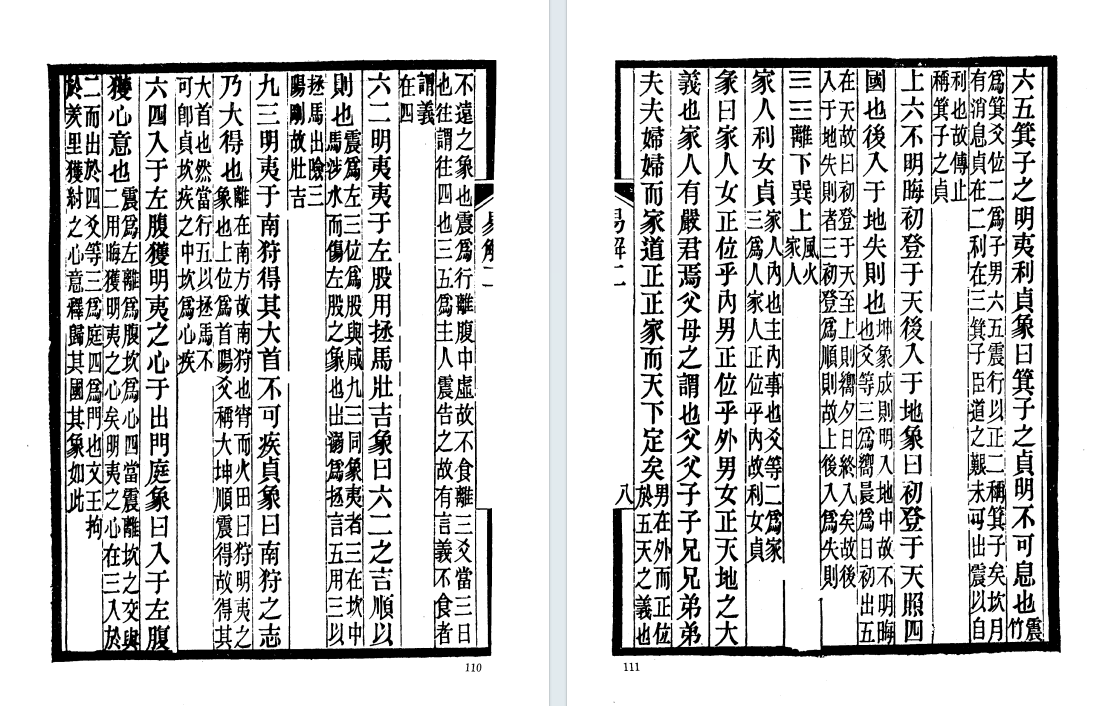 不遠之象也震爲行離腹中虛故不食離三爻當三日
也往謂往四也三五爲主人震告之故有言義不食者
謂義
在四
六二明夷夷于左股用拯馬壯吉象曰六二之吉順以
則也震爲左三位爲股與咸九三同象夷者三在坎中
馬涉水而傷左股之象也出溺爲拯言五用三以
拯馬出險三
陽剛故壯吉
九三明夷于南狩得其大首不可疾貞象曰南狩之志
乃大得也離在南方故南狩也而火田曰狩明夷之
象也上位爲首陽爻稱大坤順震得故得其
大首也然當行五以拯馬不
可卽貞坎疾之中坎爲心疾
六四入于左腹獲明夷之心于出門庭象曰入于左腹
獲心意也震爲左離爲腹坎爲心四當震離坎之交與
二用晦獲明夷之心矣明夷之心在三入於
二而出於四爻等三爲庭四爲門也文王拘
於羑里獲紂之心意釋歸其國其象如此
易解二
110
六五箕子之明夷利貞象曰箕子之貞明不可息也震
竹
爲箕爻位二爲子男六五震行以正二稱箕子矣坎月
有消息貞在二利在三箕子臣道之艱未可出震以自
利也故傳止
稱箕子之貞
上六不明晦初登于天後入于地象曰初登于天照四
國也後入于地失則也坤象成則明入地中故不明晦
也爻等三爲嚮晨爲日初出五
在天故曰初登于天至上則嚮夕日終入矣故後
入于地失則者三初登爲順則故上後入爲失則
☲☴離下巽上風火
家人
家人利女貞家人內也主內事也爻等二爲家
三爲人家人正位乎內故利女貞
彖曰家人女正位乎內男正位乎外男女正天地之大
義也家人有嚴君焉父母之謂也父父子子兄兄弟弟
夫夫婦婦而家道正正家而天下定矣男在外而正位
於五天之義也
易解二
八
111